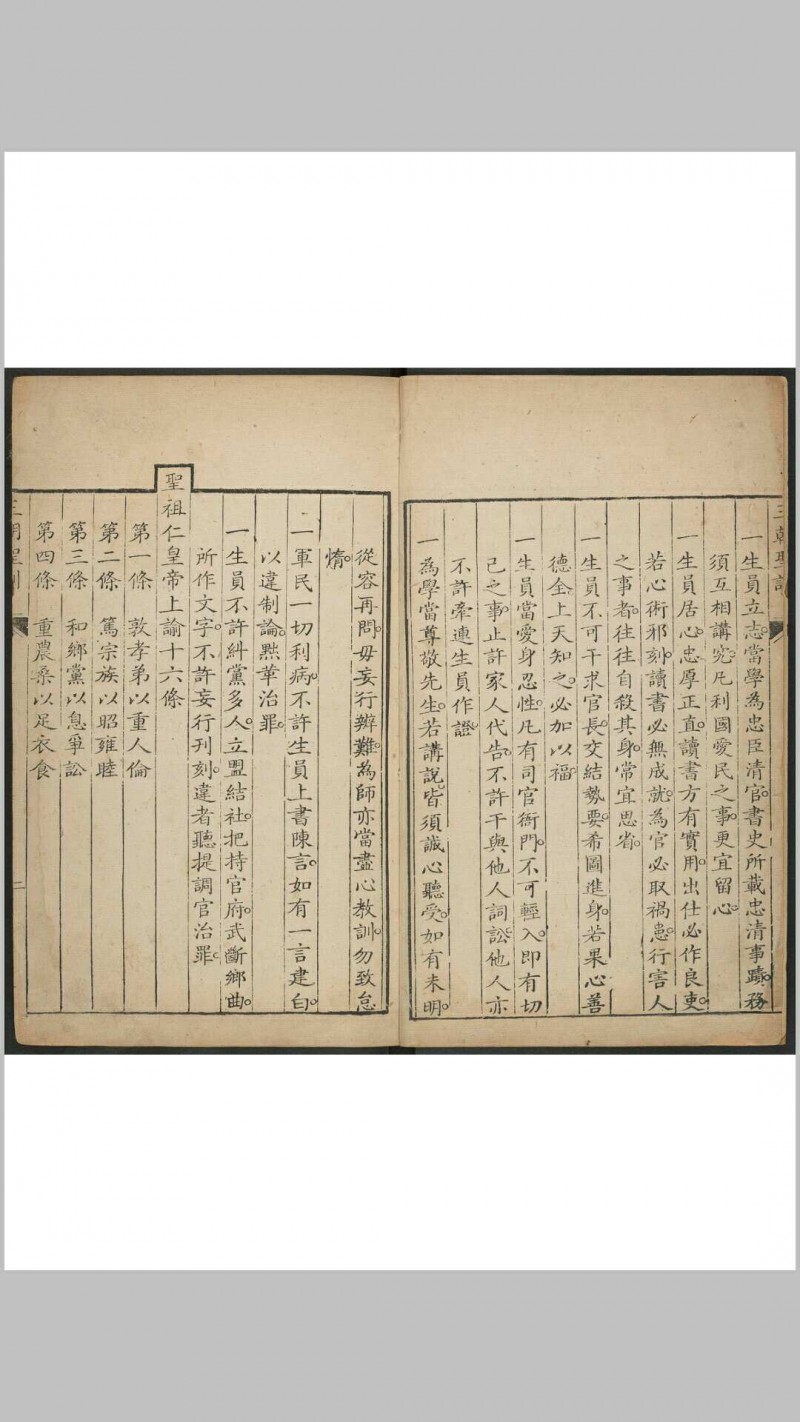 三朝聖訓
一生員立志。當學為忠臣清官。書史所載忠清事蹟。務
須互相講究。凡利國愛民之事。更宜留心。
一生員居心。忠厚正直。讀書方有實用。出仕必作良吏。
若心術邪刻。讀書必無成就。為官必取禍患。行害人
之事者。往往自殺其身。常宜思省。
一生員不可干求官長。交結勢要。希圖進身。若果心善
德全。上天知之。必加以福。
一生員當愛身忍性。凡有司官衙門。不可輕入。即有切
己之事。止許家人代告。不許干與他人詞訟。他人亦
不許牽連生員作證。
一為學當尊敬先生。若講說。皆須誠心聽受。如有未明。
從容再問。毋妄行辨難。為師亦當盡心教訓。勿致怠
惰。
一軍民一切利病。不許生員上書陳言。如有一言建白。
以違制論。黜革治罪。
一生員不許糾黨多人。立盟結社。把持官府。武斷鄉曲。
所作文字。不許妄行刊刻。違者聽提調官治罪。
聖祖仁皇帝上諭十六條
第一條 敦孝弟以重人倫
第二條 篤宗族以昭雍睦
第三條 和鄉黨以息爭訟
第四條 重農桑以足衣食
三朝聖訓 二